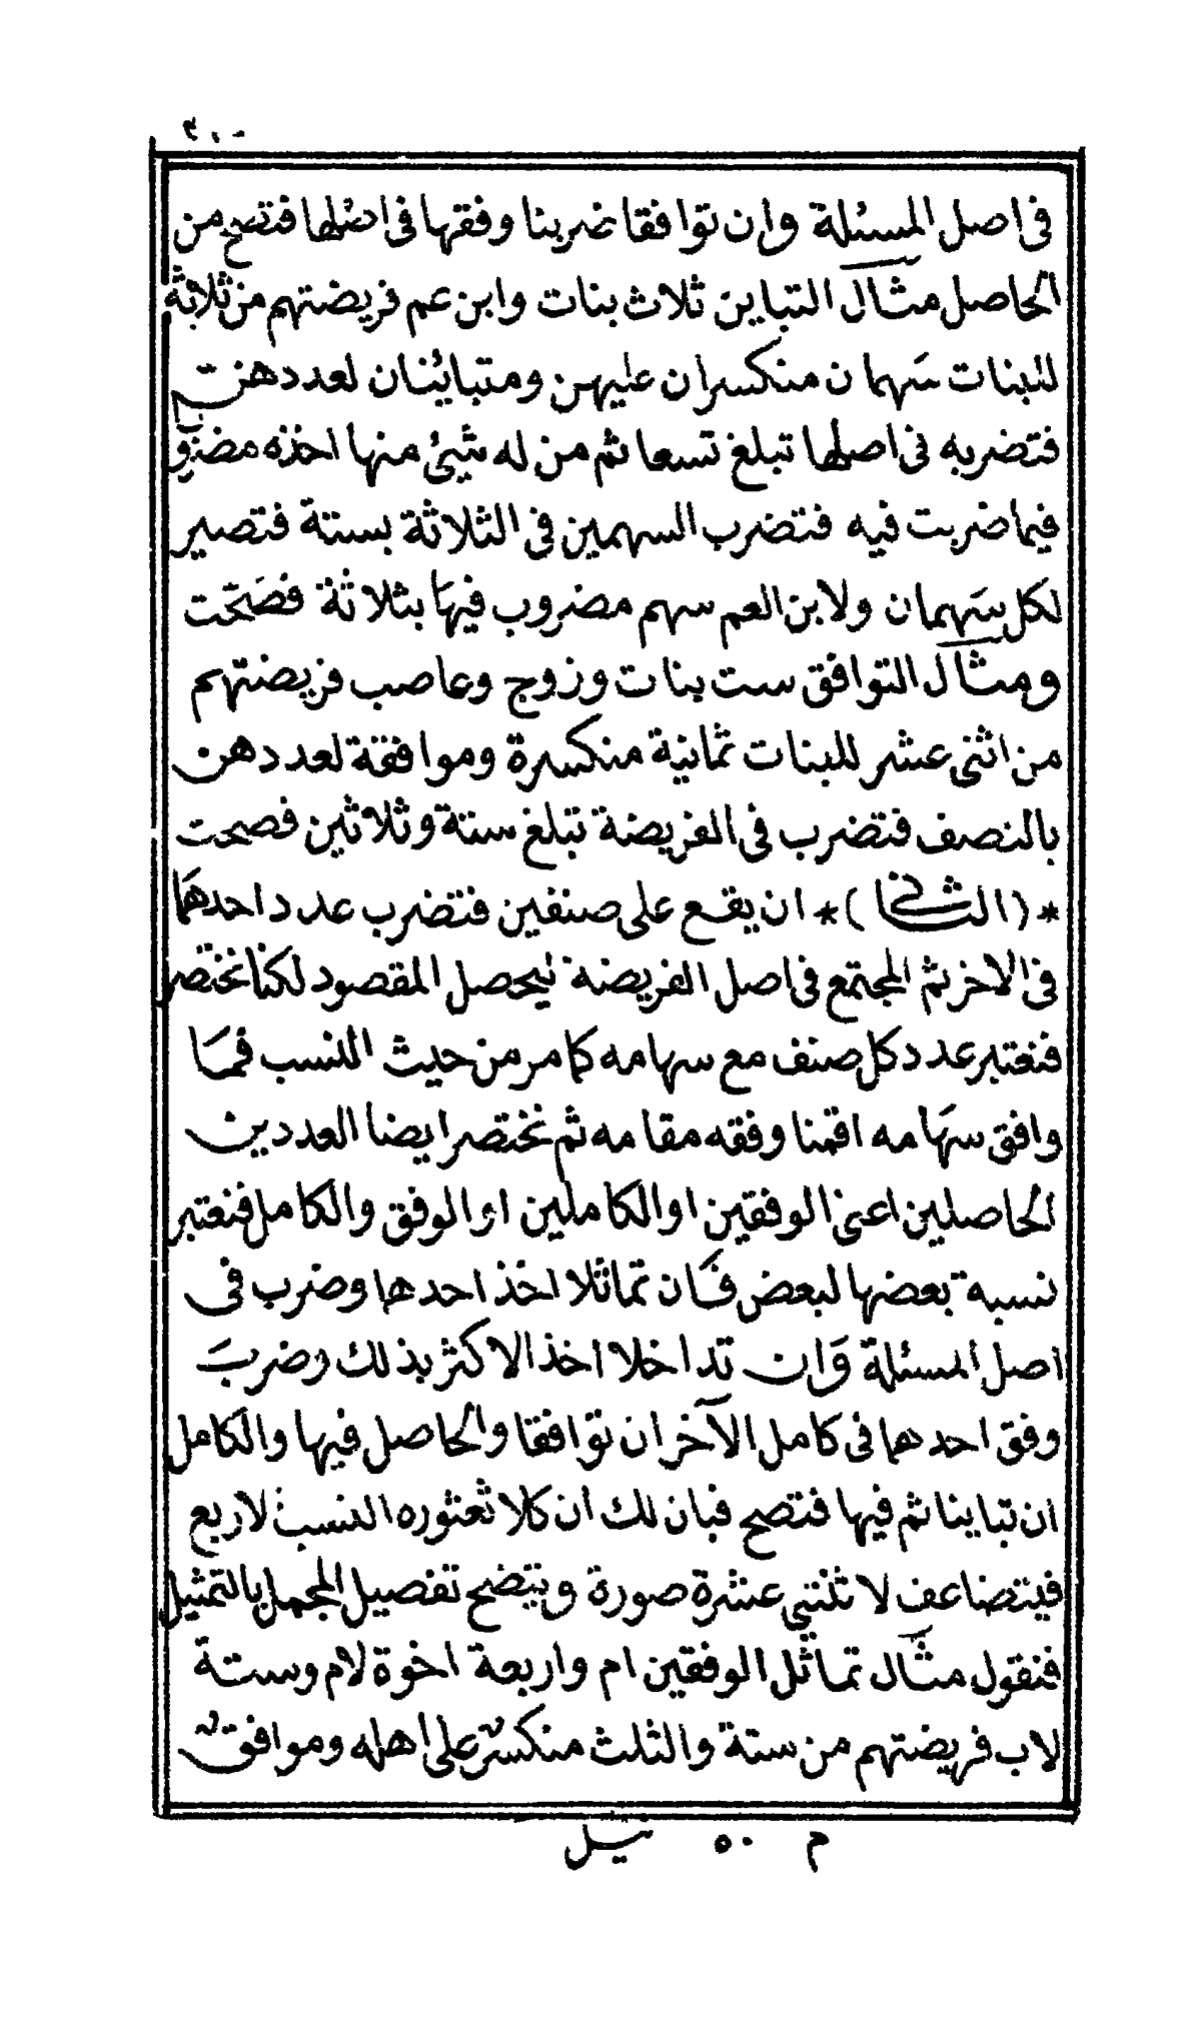 في اصل المسئلة وان توافقا ضربنا وفقها في اصلها فتصح من
الحاصل مثال التباين ثلاث بنات وابن عم فريضتهم من ثلاثة
للبنات سهمان منكسران عليهن ومتباينان لعددهن
فتضربه في اصلها تبلغ تسعا ثم من له شيئ منها اخذه مضروبا
فيما ضربت فيه فتضرب السهمين في الثلاثة بستة فتصير
لكل سهمان ولابن العم سهم مضروب فيها بثلاثة فصحت
ومثال التوافق ست بنات وزوج وعاصب فريضتهم
من اثني عشر للبنات ثمانية منكسرة وموافقة لعددهن
بالنصف فتضرب في الفريضة تبلغ ستة وثلاثين فصحت
*(الثاني)* ان يقع على صنفين فتضرب عدد احدهما
في الاخر ثم المجتمع في اصل الفريضة ليحصل المقصود لكنا نختصر
فنعتبر عدد كل صنف مع سهامه كما مر من حيث النسب فما
وافق سهامه اقمنا وفقه مقامه ثم نختصر ايضا العددين
الحاصلين اعني الوفقين او الكاملين او الوفق والكامل فنعتبر
نسبة بعضها لبعض فان تماثلا اخذ احدهما وضرب في
اصل المسئلة وان تداخلا اخذ الاكثر بذلك وضرب
وفق احدهما في كامل الآخر ان توافقا والحاصل فيها والكامل
ان تباينا ثم فيها فتصح فبان لك ان كلا تعتوره النسب لاربع
فيتضاعف لاثنتي عشرة صورة ويتضح تفصيل المجمل بالتمثيل
فنقول مثال تماثل الوفقين ام واربعة اخوة لام وستة
لاب فريضتهم من ستة والثلث منكسر على اهله وموافق
م ٥٠ نيل